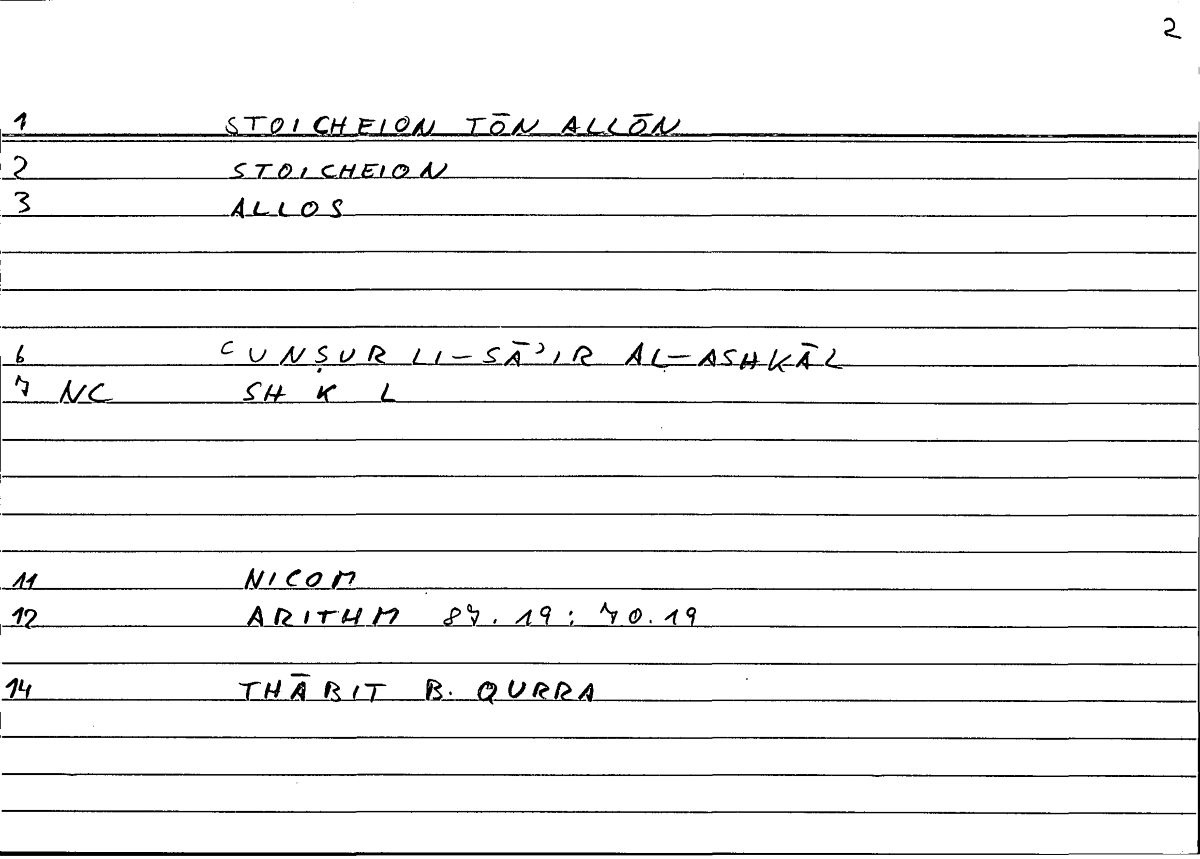 2
1 STOICHEION TŌN ALLŌN
2 STOICHEION
3 ALLOS
6 ʿUNṢUR LI-SĀʾIR AL-ASHKĀL
7 NC SH K L
11 NICOM
12 ARITHM 87.19; 70.19
14 THĀBIT B. QURRA